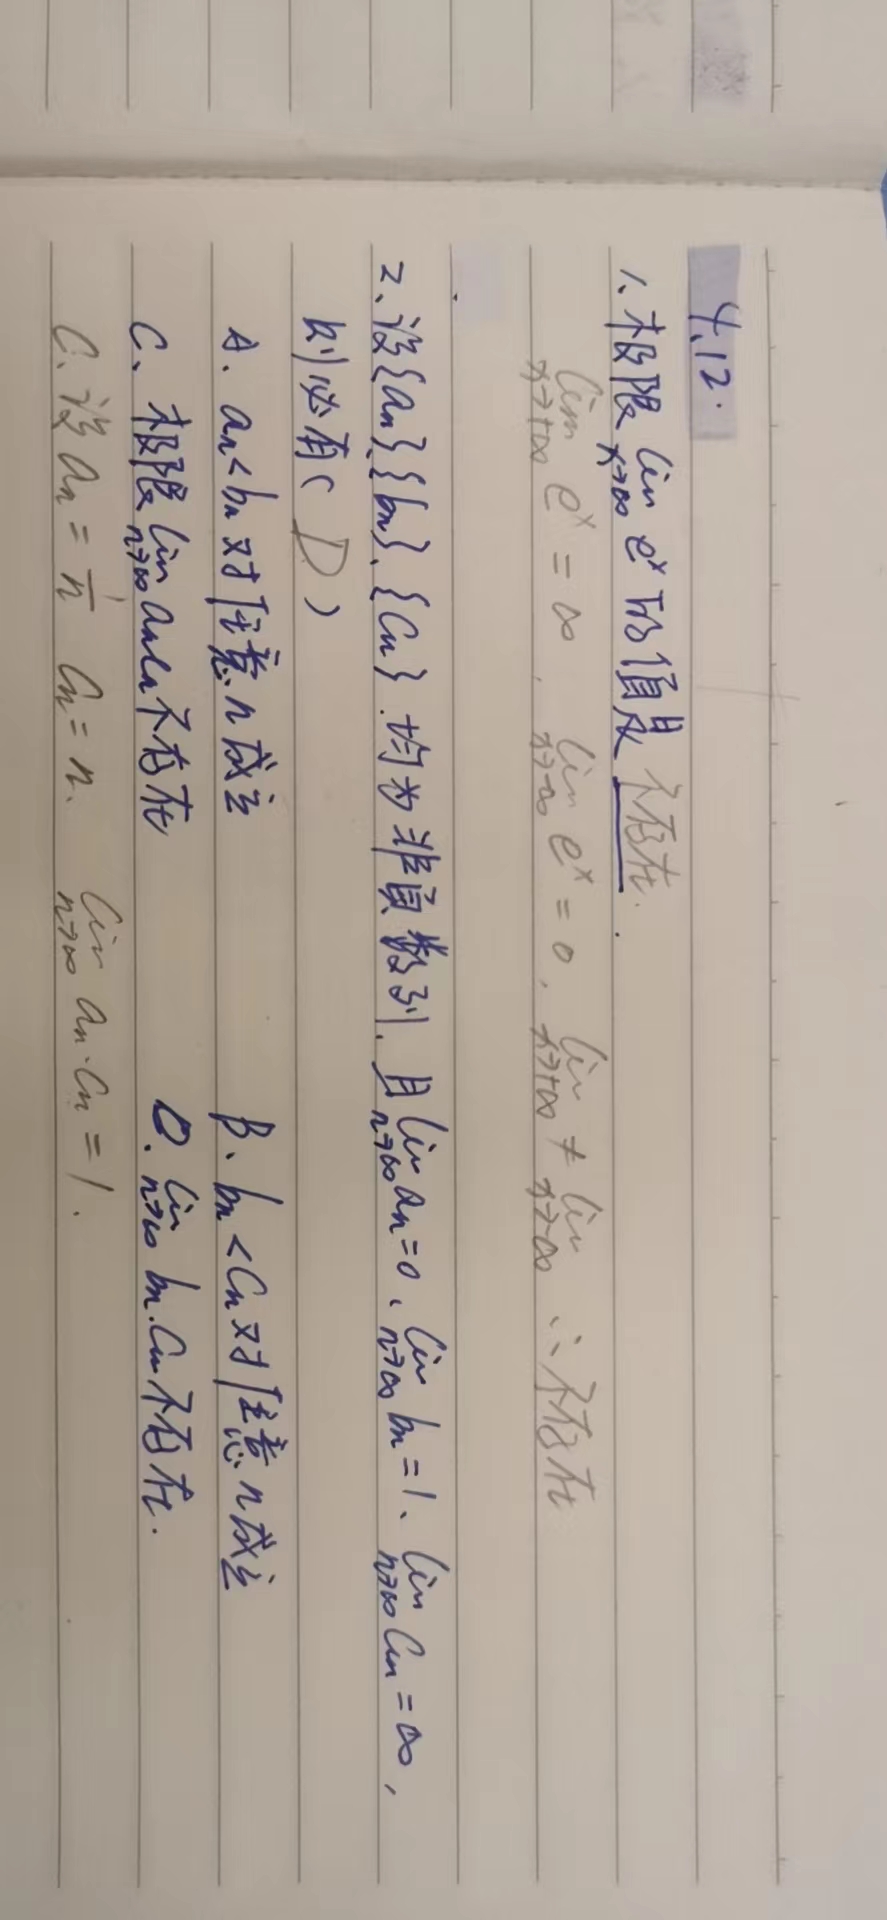 4.12.
1、极限 lim x→∞ eˣ 的值是 不存在.
lim x→+∞ eˣ = ∞, lim x→-∞ eˣ = 0, lim x→+∞ ≠ lim x→-∞ ∴不存在
2、设{an}、{bn}、{Cn}.均为非负数列.且 lim n→∞ an=0、lim n→∞ bn=1、lim n→∞ Cn=∞,
则必有( D )
A. an<bn对任意n成立 B、bn<Cn对任意n成立
C、极限 lim n→∞ anCn不存在 D. lim n→∞ bn.Cn不存在.
C. 设 an = 1/n Cn = n. lim n→∞ an·Cn = 1.